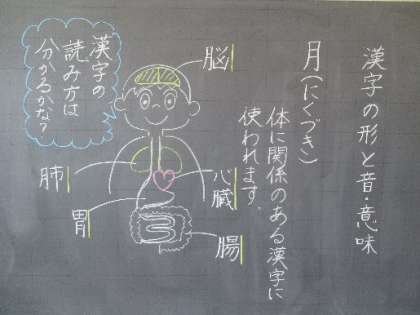 漢字の形と音・意味
月(にくづき)
体に関係のある漢字に
使われます。
脳
心臓
腸
漢字の
読み方は
分かるかな?
肺
胃